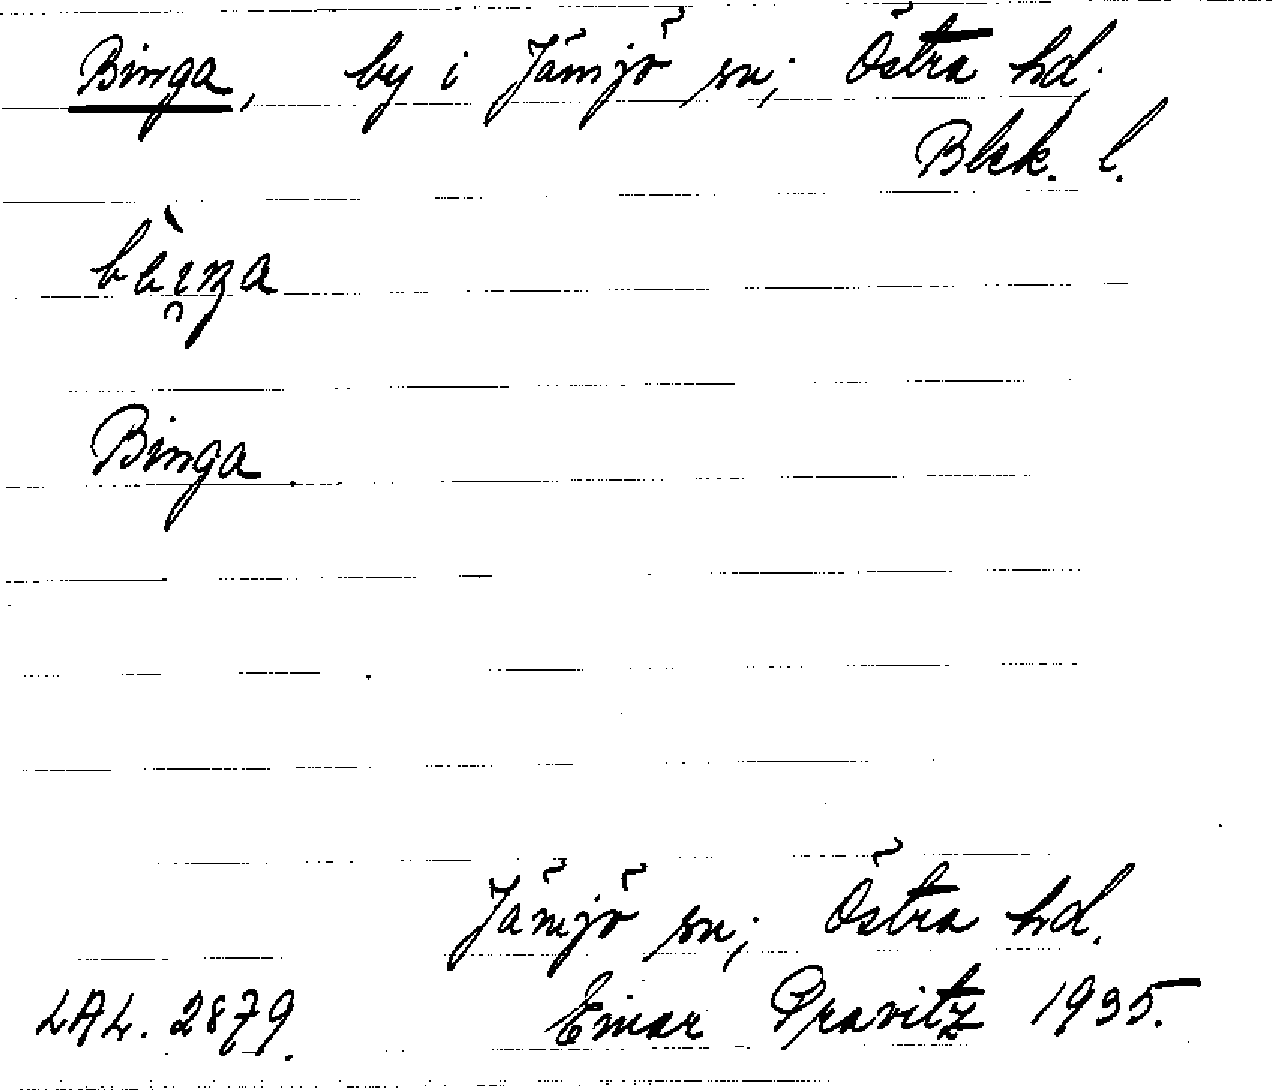 Binga, by i Jämjö sn; Östra hd.
Blek. l.
Binga.
Jämjö sn; Östra hd.
LAL. 2879. Einar Pravitz 1935.